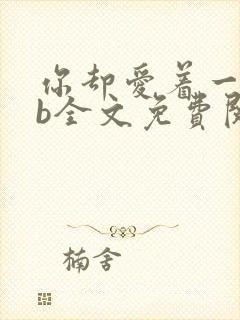 你却爱着一
b全文免费阅
楠舍